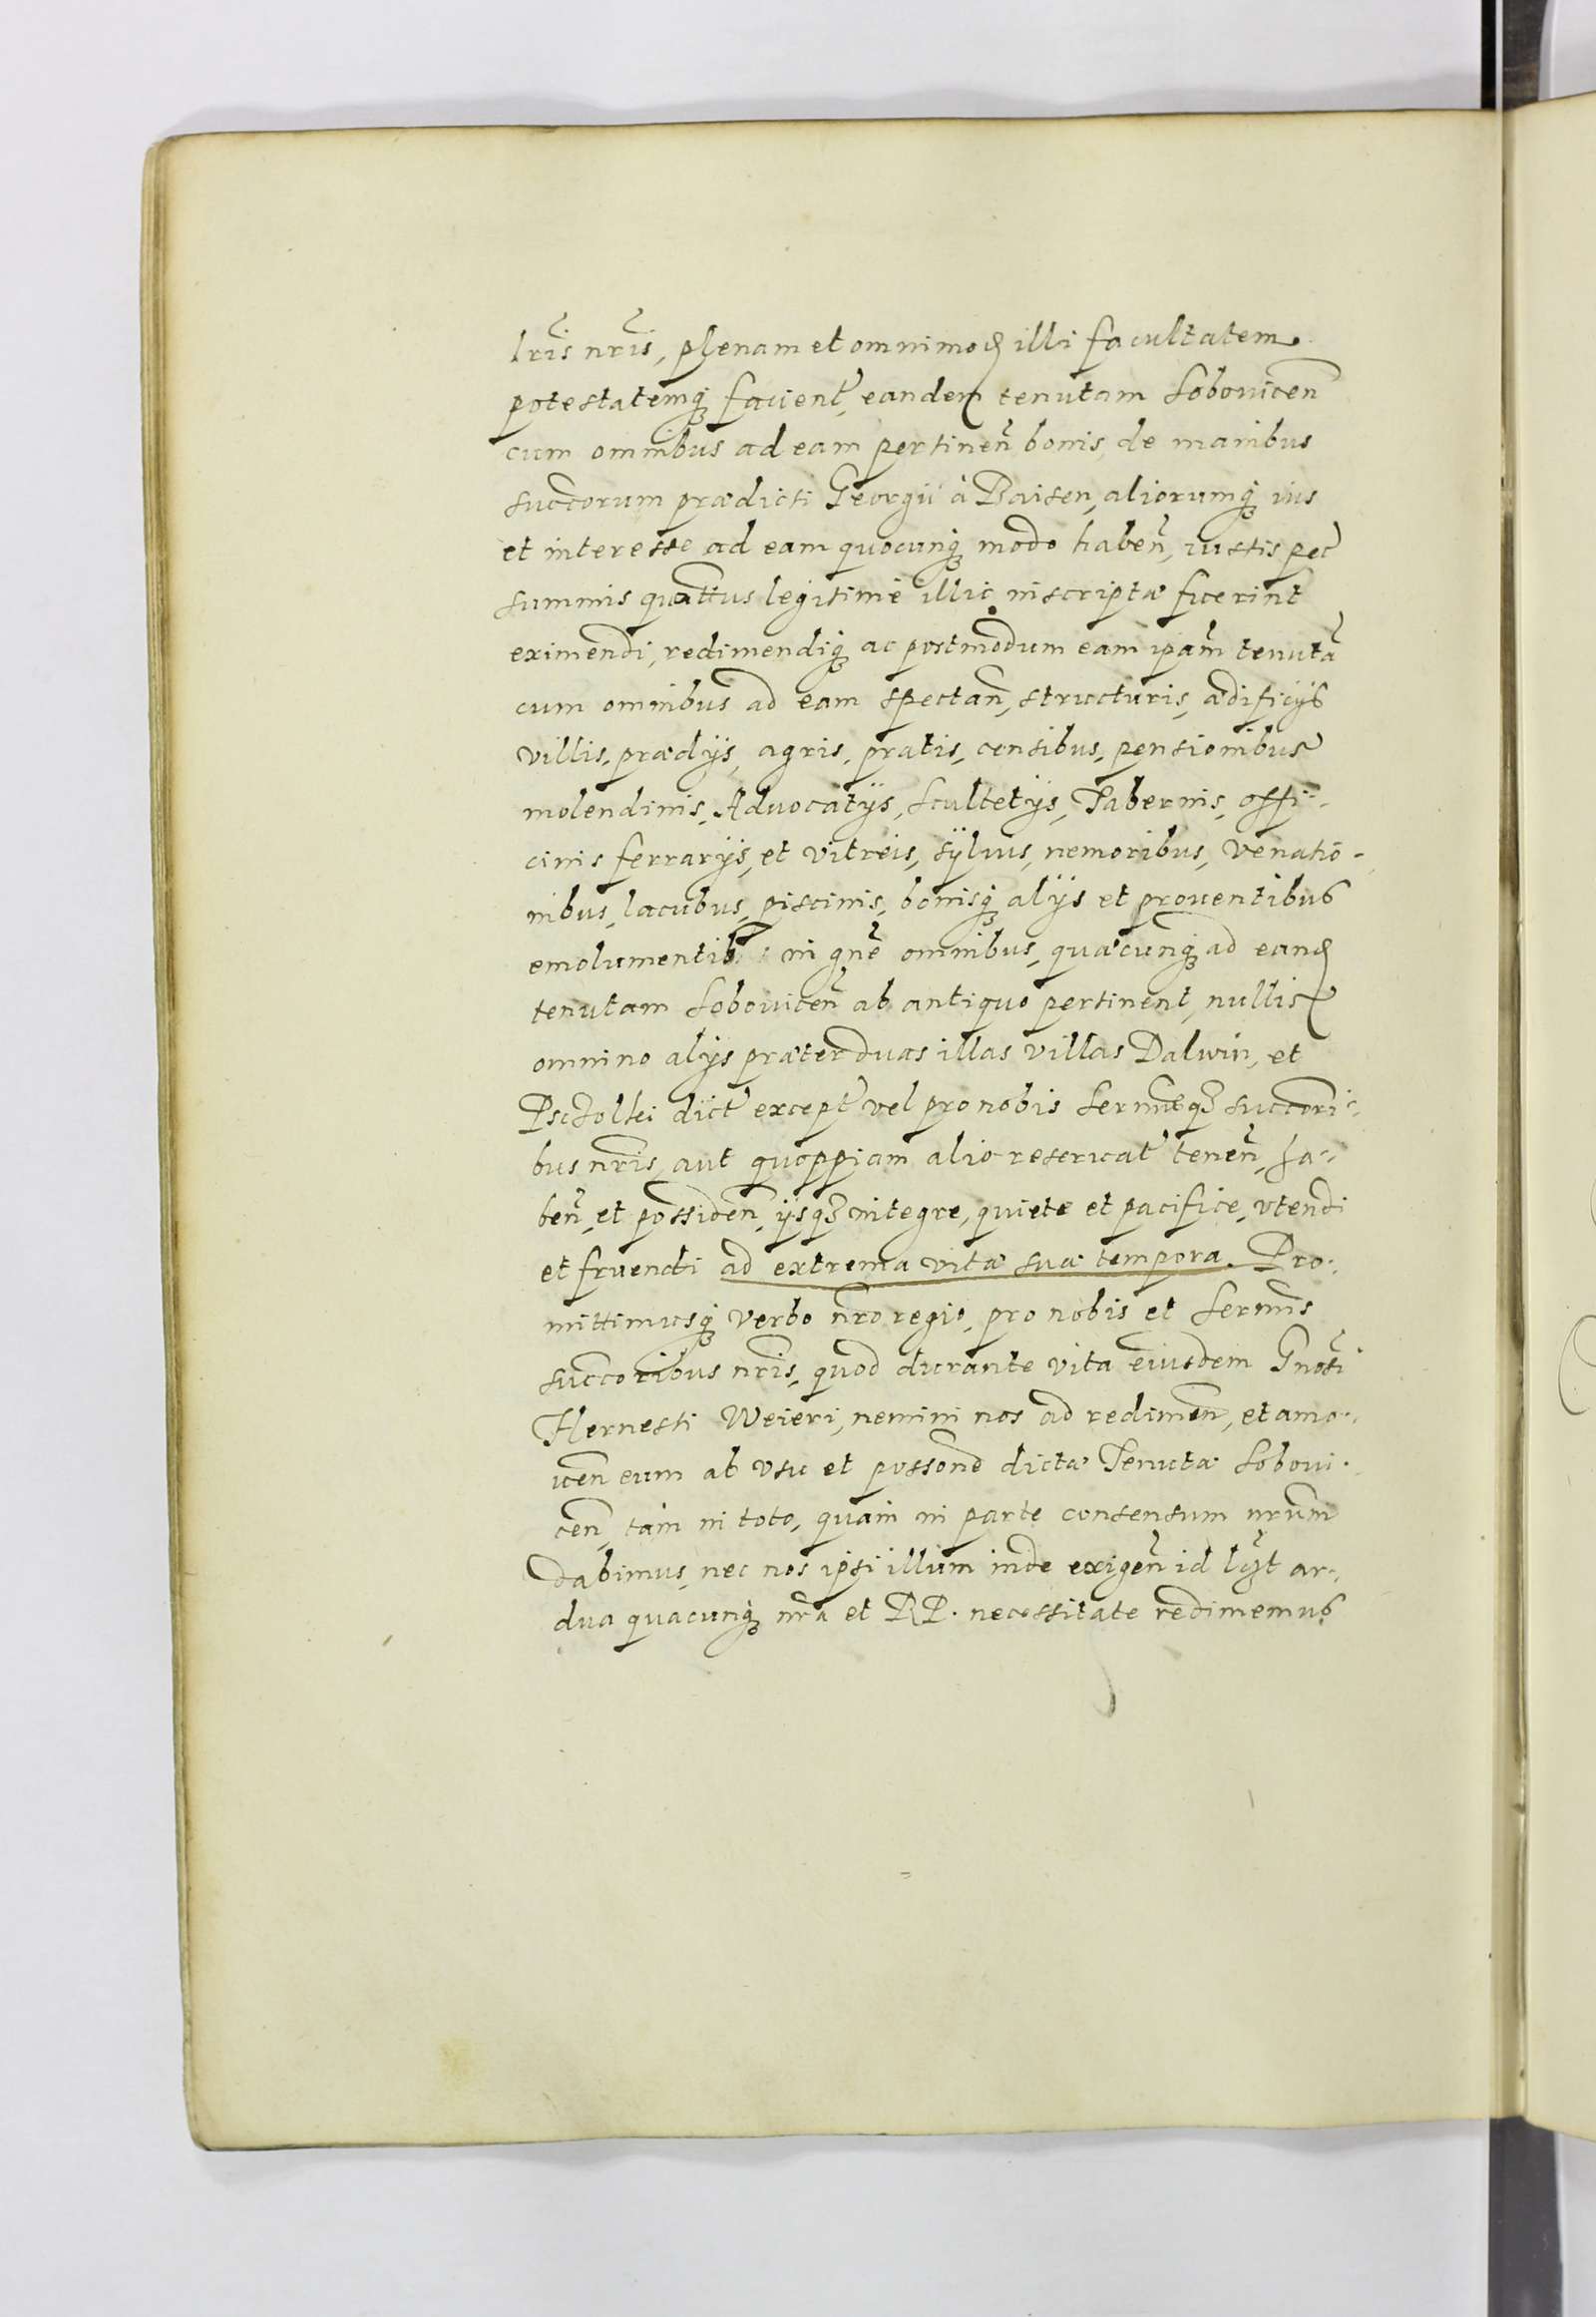 lr̃is nr̃is, plenam et omnimod illi facultatem
potestatemq; facient, eandem tenutam Sobovicen̄
cum omnibus ad eam pertinen̄ bonis, de manibus
succorum prædicti Georgii à Baisen, aliorumq; ius
et interesse ad eam quocunq; modo haben̄, iustis pec̄
summis quattus legitimè illic inscriptæ fuerint
eximendi, redimendiq; ac postmodum eam ip̄am tenutā
cum omnibus ad eam spectan̄, structuris, ædificijs
villis, prædijs, agris, pratis, censibus, pensionibus
molendinis, Advocatijs, Scultetijs, Tabernis, offi-
cinis ferrarijs, et vitreis, sÿluis, nemoribus, venatio-
nibus, lacubus, piscinis, bonisq; alijs et prouentibus
emolumentib in gñe omnibus, quæcunq; ad eand
tenutam Sobouicen̄ ab antiquo pertinent, nullis
omnino alijs præter duas illas villas Dalwin, et
Psczolki dict except vel pro nobis Sermisq; succori-
bus nr̃is, aut quoppiam alio reseruat tenen̄, ha-
ben̄, et possiden̄, ijsq; integre, quiete et pacifice, vtendi
et fruendi ad extrema vitæ suæ tempora. Pro-
mittimusq; verbo nr̃o regio, pro nobis et Sermis
succoribus nr̃is, quod durante vita eiusdem Gnosi
Hernesti Weieri, nemini nos ad redimen̄, et amo-
uen̄ eum ab vsu et possone dictæ Tenutæ Soboui-
cen̄, tam in toto, quàm in parte consensum nr̃um
dabimus, nec nos ipsi illum inde exigen̄ id lqet ar-
dua quacunq; nr̃a et RP. necessitate redimemus